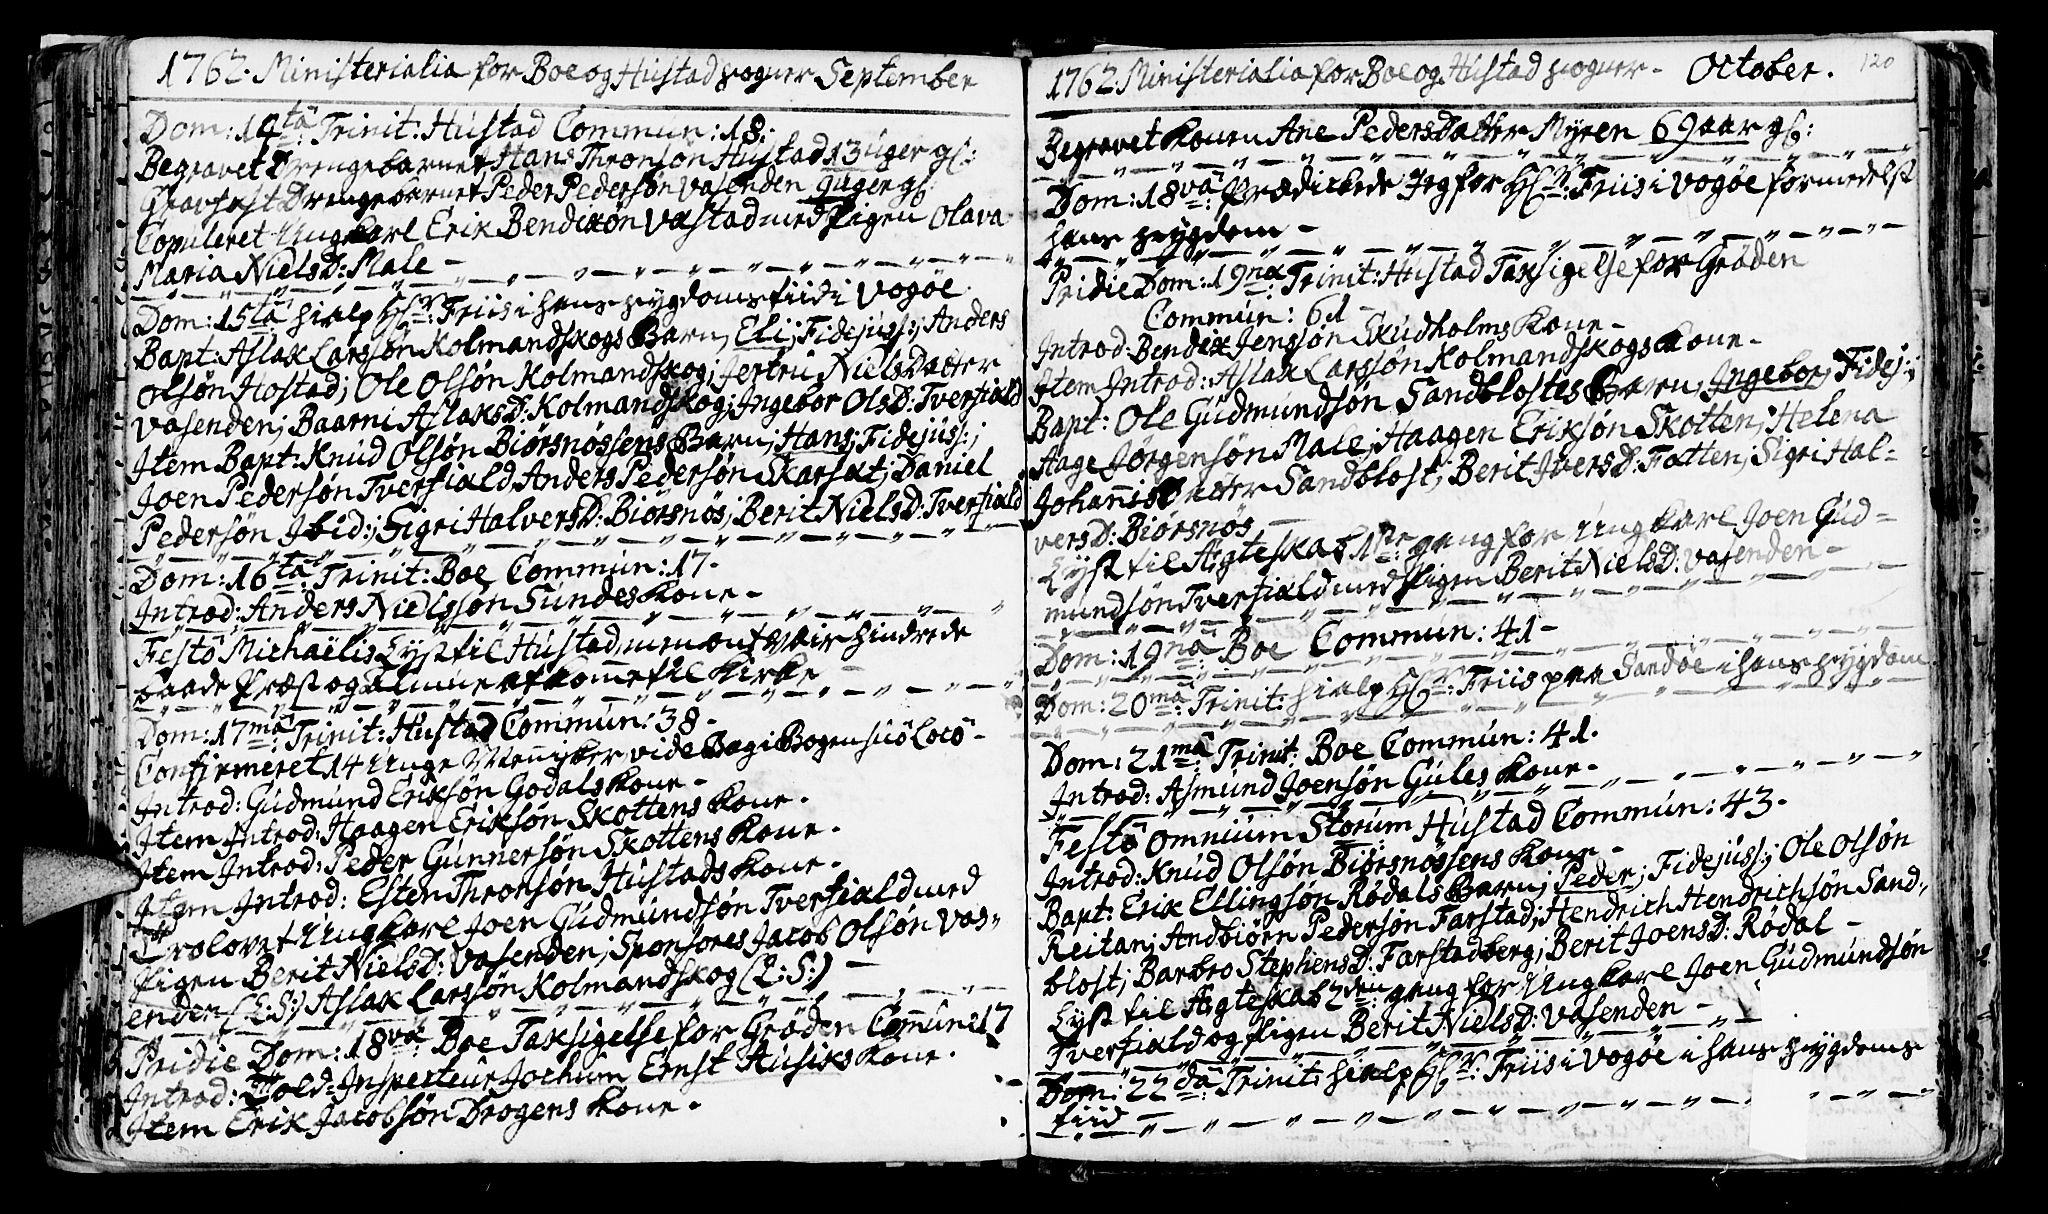 1762. Ministerialia for Boe og Hustad Sogner September
Dom: 14ta Trinit: Hustad Commun: 18:
Begravet Drengebarnet Hans Thronsøn Hustad 13 uger gl:
Graffæst Drengebarnet Peder Pedersøn Vasenden 9 uger gl:
Copuleret Ungkarl Erik Bendixøn Vastad med Pigen Olava
Maria NielsD: Male -
Dom: 15ta hialp Hr: Friis i hans Sygdoms tiid i Vogøe
Bapt: Aslak Larssøn Kolmandskogs Barn, Eli; Fidejuss:; Anders
Olsøn Hostad; Ole Olsøn Kolmandskog; Jertru NielsDatter
Vasenden; Baarni AslaksD: Kolmandskog; Ingebor OlsD: Tverfiald
Item Bapt: Knud Olsøn Biørsnøssens Barn; Hans; Fidejuss:;
Joen Pedersøn Tverfiald, Anders Pedersøn Skarsæt; Daniel
Pedersøn Ibid:; Sigri HalversD: Biørsnøs; Berit NielsD: Tverfiald
Dom: 16ta: Trinit: Boe Commun: 17.
Introd: Anders Nielssøn Sundes Kone -
Festo Michaëlis Lyst til Hustad, men ont Veir hindrede
baade Præst og Almue at kome til Kirke
Dom: 17ma: Trinit: Hustad Commun: 38 -
Confirmeret 14 Unge Mennisker vide Bag i Bogen suo Loco -
Introd: Gudmund Eriksøn Godals Kone -
Item Introd: Haagen Eriksøn Skottens Kone -
Item Introd: Peder Gunnersøn Skottens Kone -
Item Introd: Esten Thronsøn Hustads Kone -
Trolovet Ungkarl Joen Gudmundsøn Tverfiald med
Pigen Berit NielsD: Vasenden; Sponsores Jacob Olsøn Vas-
enden (L:S:) Aslak Larssøn Kolmandskog (L:S:) -
Pridie Dom: 18va: Boe Taksigelse for Grøden Comun: 17
Introd: Told-Inspecteur Jochum Ernst Husiks Kone.
Item Erik Jacobsøn Drogens Kone -
1762. Ministerialia for Boe og Hustad Sogner - October. 120
Begravet Konen Ane PedersDatter Myren 69 aar gl:
Dom: 18va: Prædickede Jeg for Hr: Friis i Vogøe formedelst
hans Sygdom -
Pridie Dom: 19na Trinit: Hustad Taksigelse for Grøden
Commun: 61 -
Introd: Bendix Jenssøn Skudholms Kone -
Item Introd: Aslak Larssøn Kolmandskogs Kone -
Bapt: Ole Gudmundsøn Sandblostes Barn, Ingebor, Fidej:;
Aage Jørgensøn Male; Haagen Eriksøn Skotten; Helena
JohannisDatter Sandblost; Berit IversD: Fatten; Sigri Hal-
versD: Biørsnøs -
Lyst til Ægteskab 1ste: gang for Ungkarl Joen Gud-
mundsøn Tverfiald med Pigen Berit NielsD: Vasenden -
Dom: 19na: Boe Commun: 41 -
Dom: 20ma: Trinit: hialp Hr: Friis paa Sandøe i hans Sygdom
Dom: 21ma: Trinit: Boe Commun: 41.
Introd: Asmund Joensøn Gules Kone -
Festo Omnium Storum Hustad Commun: 43 -
Introd: Knud Olsøn Biørsnøssens Kone -
Bapt: Erik Ellingsøn Rødals Barn; Peder; Fidejuss:; Ole Olsøn
Reitan; Andbiørn Pedersøn Farstad; Hendrich Hendrichsøn Sand-
blost; Barbro StephensD: Farstadberg; Berit JoensD: Rødal -
Lyst til Ægteskab 2den gang for Ungkarl Joen Gudmundsøn
Tverfiald og Pigen Berit NielsD: Vasenden -
Dom: 22da: Trinit: hialp Hr: Friis i Vogøe i hans Sygdoms
tiid -